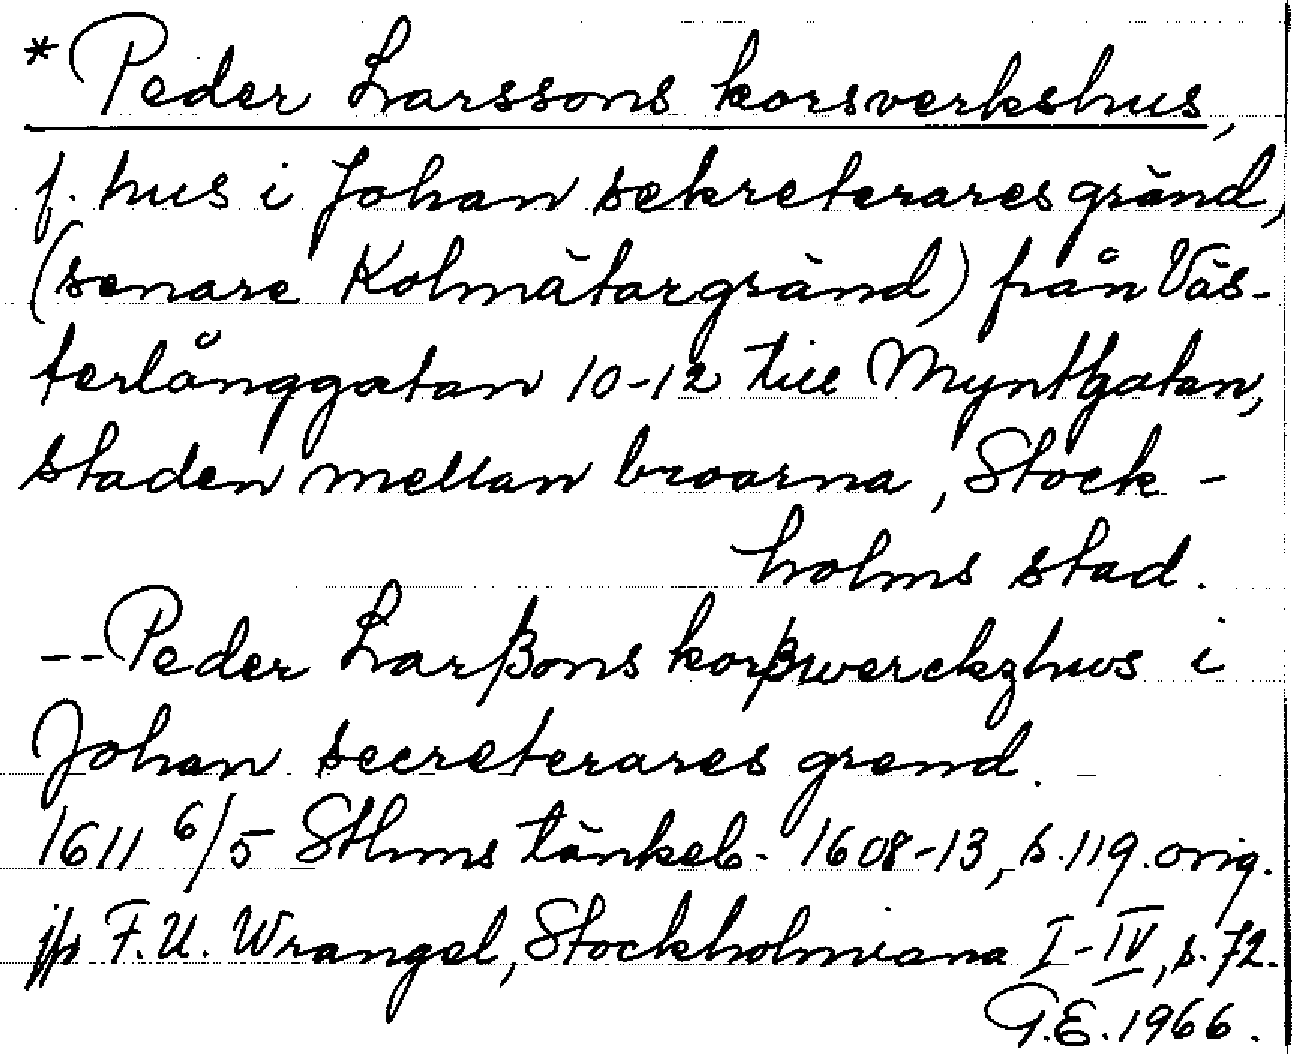 * Peder Larssons korsverkshus,
f. hus i Johan sekreterares gränd,
(senare Kolmätargränd) från Väs-
terlånggatan 10-12 till Myntgatan,
staden mellan broarna, Stock-
holms stad.
-- Peder Larßons korßwerckzhws i
Johan secreterares grend.
1611 6/5 Sthms tänkeb. 1608-13, s. 119. orig.
jfr F.U. Wrangel, Stockholmiana I-IV, s. 72.
G.E. 1966.